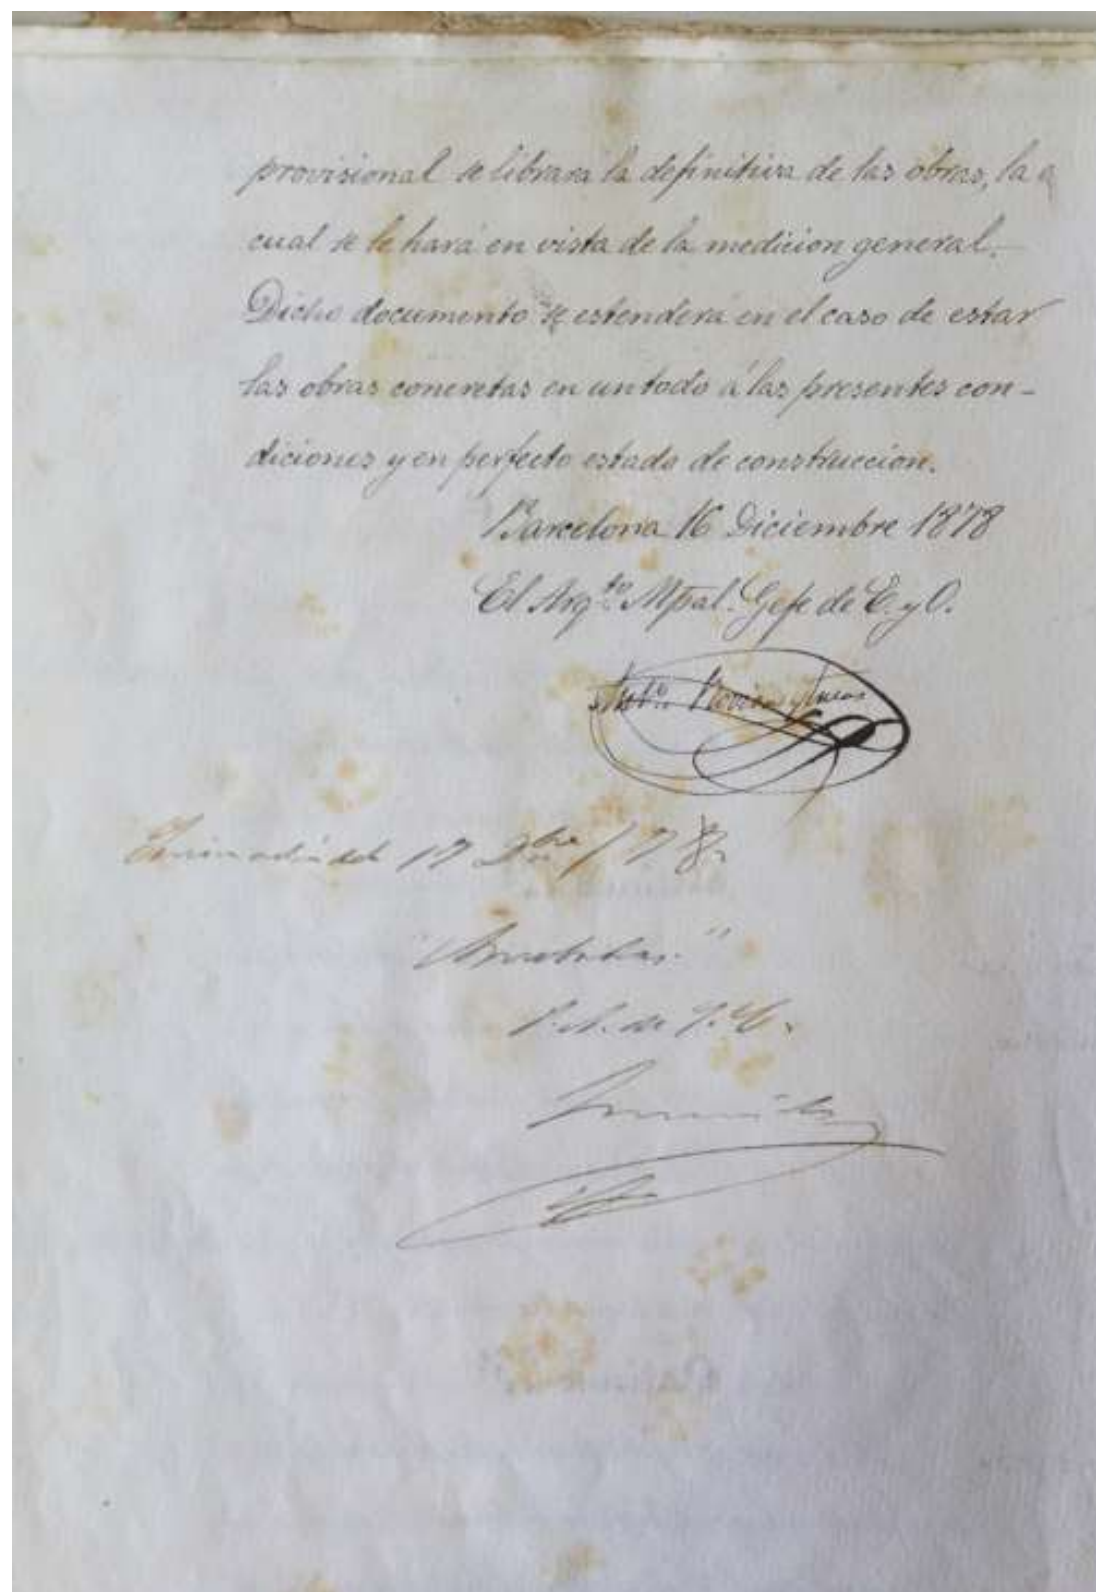 provisional se librara la definitiva de las obras, la
cual se le hará en vista de la medicion general.
Dicho documento se estenderá en el caso de estar
las obras concretas en un todo á las presentes con-
diciones y en perfecto estado de construccion.
Barcelona 16 Diciembre 1878
El Arq.to Mpal. Gefe de E. y O.
Ant.o Rovira y Trias
17 Dbre / 78.
P. A. de